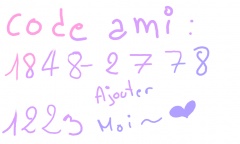 Code ami :
1848-2778
Ajouter
1223 Moi ~